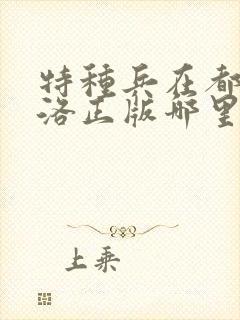 特種兵在都
洛正版哪里
上乘